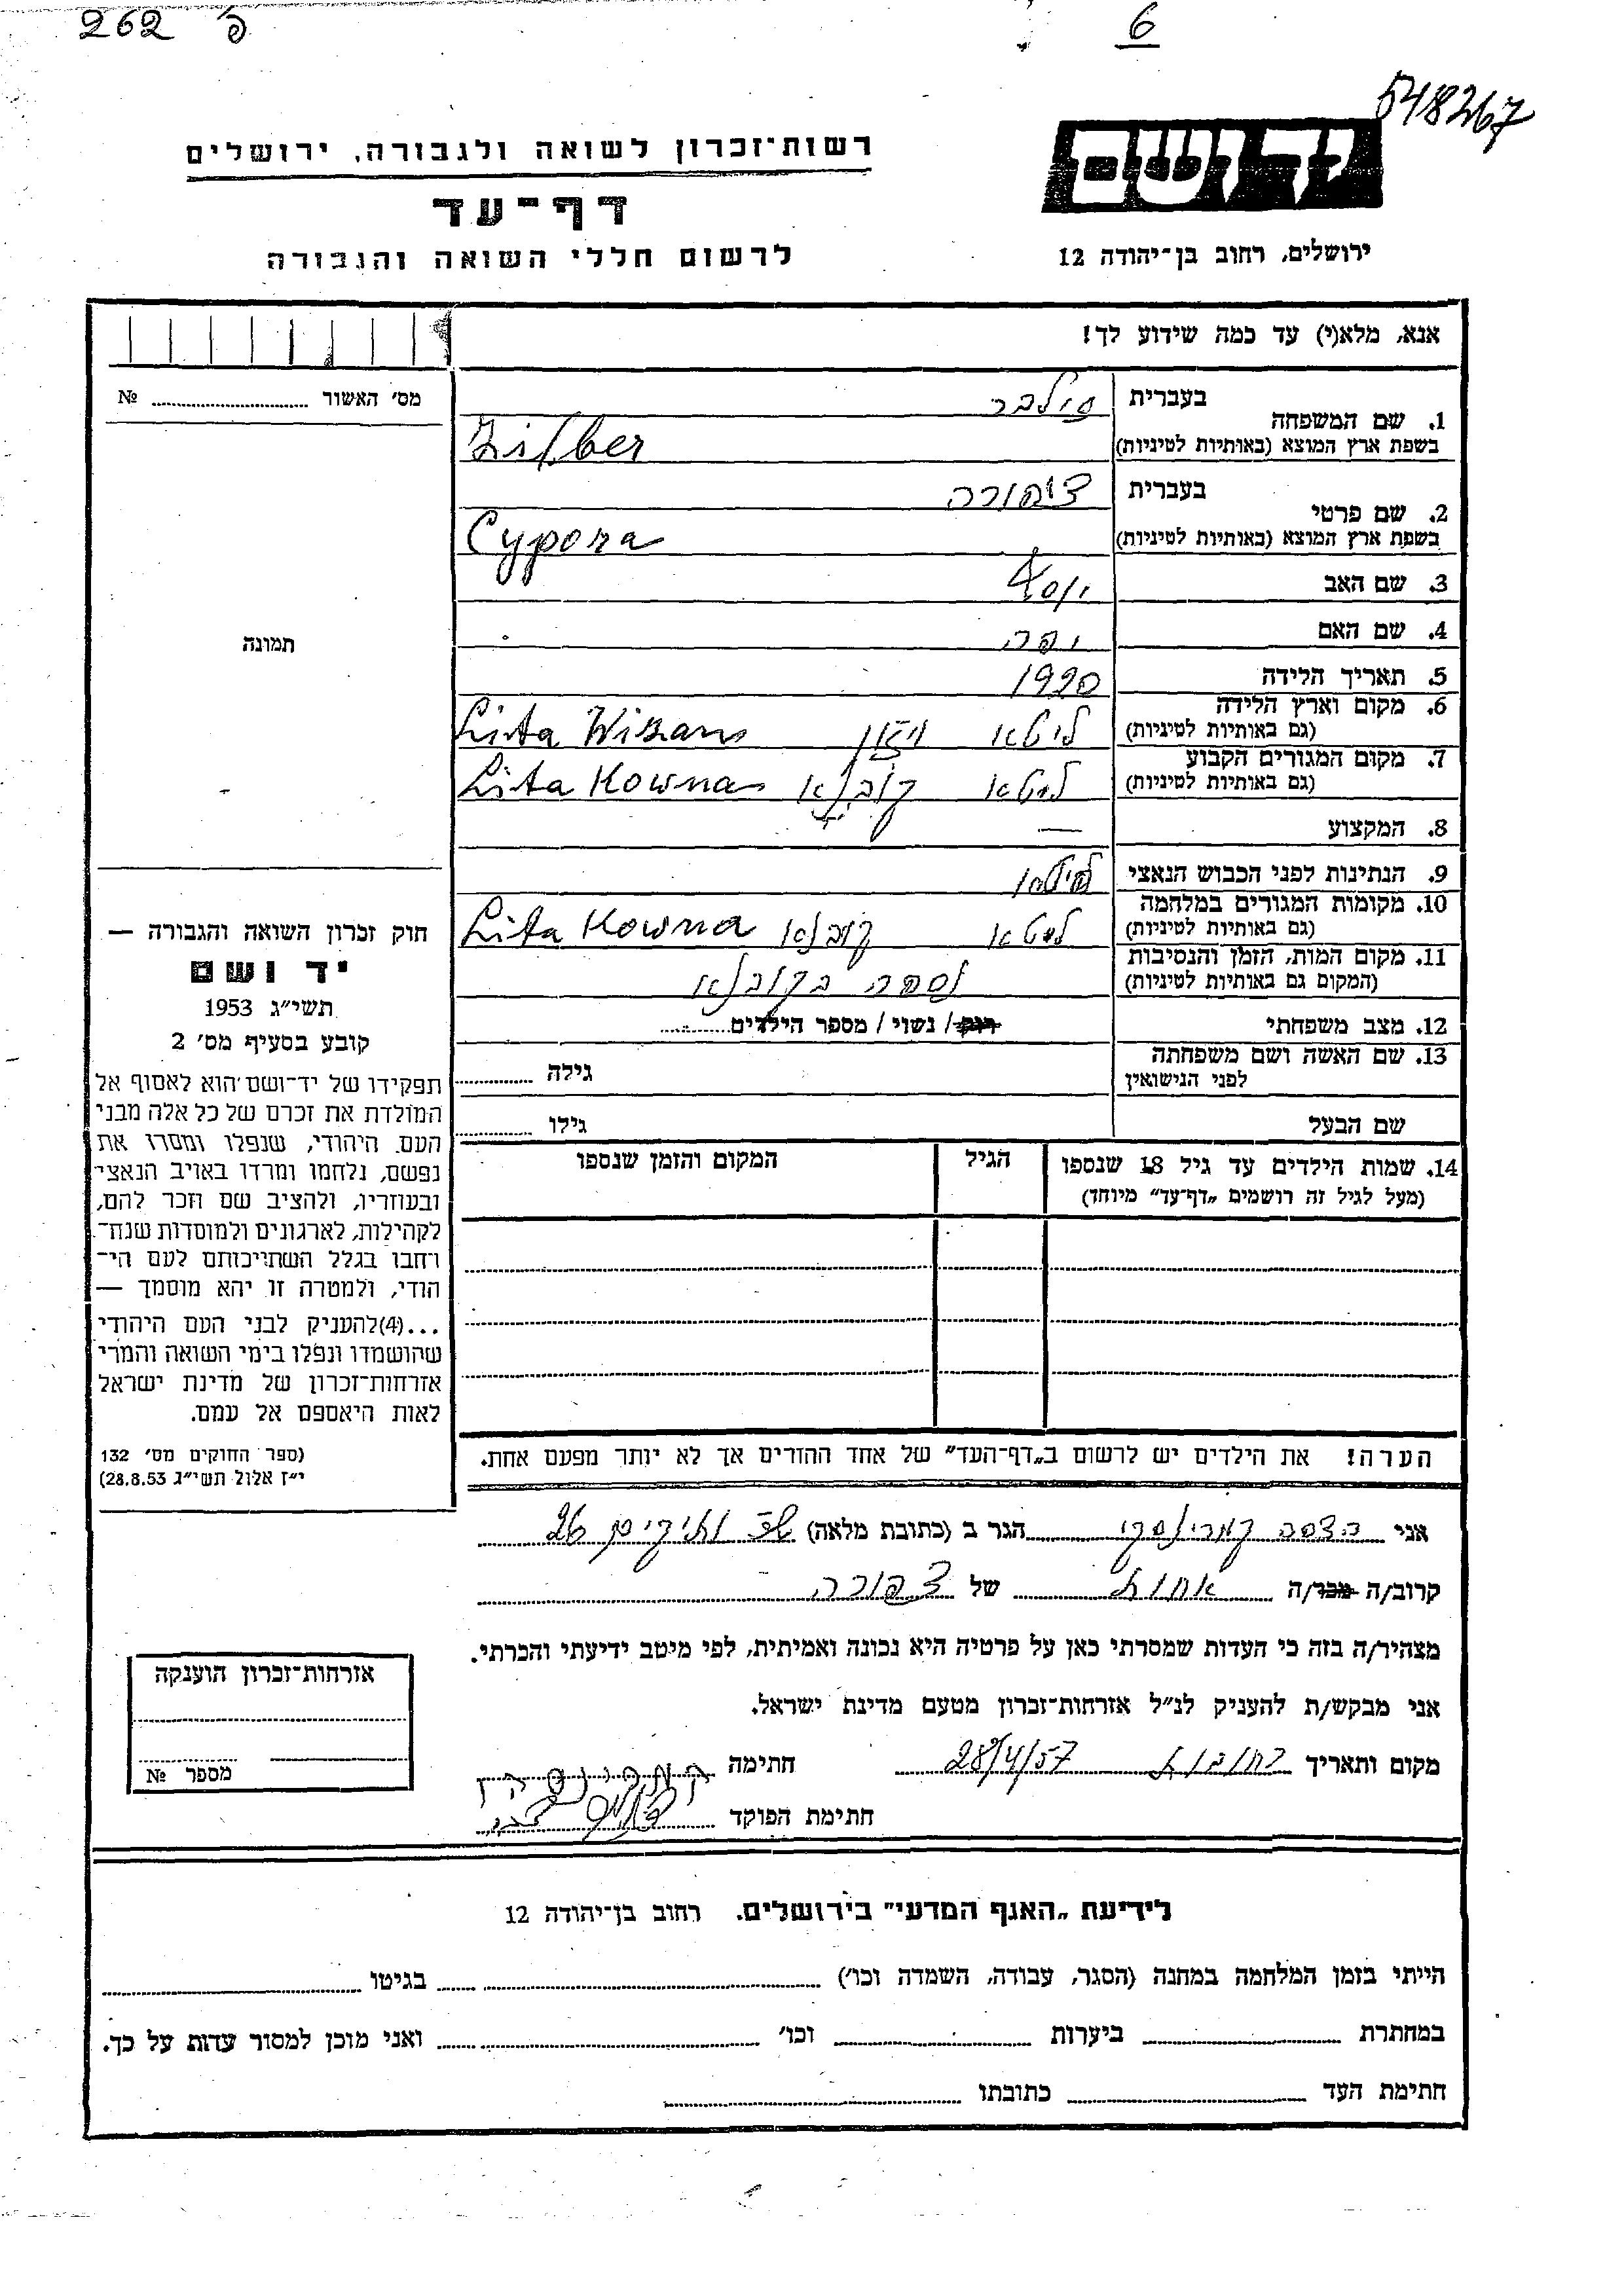 262 פ'
6
548267
יד ושם
רשות־זכרון לשואה ולגבורה, ירושלים
דף־עד
לרשום חללי השואה והגבורה
ירושלים, רחוב בן־יהודה 12
אנא, מלא(י) עד כמה שידוע לך!
מס' האשור № 
1. שם המשפחה בעברית זילבר
בשפת ארץ המוצא (באותיות לטיניות) Zilber
2. שם פרטי בעברית ציפורה
בשפת ארץ המוצא (באותיות לטיניות) Cypora
3. שם האב יוסף
4. שם האם יפה
5. תאריך הלידה 1920
6. מקום וארץ הלידה (גם באותיות לטיניות) ליטא Lita
7. מקום המגורים הקבוע (גם באותיות לטיניות) ליטא קובנא Lita Kowna
8. המקצוע —
9. הנתינות לפני הכבוש הנאצי
10. מקומות המגורים במלחמה (גם באותיות לטיניות) ליטא קובנא Lita Kowna
11. מקום המות, הזמן והנסיבות (המקום גם באותיות לטיניות) נספה בקובנא
12. מצב משפחתי רוק / נשוי / מספר הילדים
13. שם האשה ושם משפחתה לפני הנישואין גילה
שם הבעל גילו
14. שמות הילדים עד גיל 18 שנספו (מעל לגיל זה רושמים „דף־עד" מיוחד)
הגיל
המקום והזמן שנספו
הערה! את הילדים יש לרשום ב„דף־העד" של אחד ההורים אך לא יותר מפעם אחת.
תמונה
חוק זכרון השואה והגבורה —
יד ושם
תשי"ג 1953
קובע בסעיף מס' 2
תפקידו של יד־ושם הוא לאסוף אל
המולדת את זכרם של כל אלה מבני
העם היהודי, שנפלו ומסרו את
נפשם, נלחמו ומרדו באויב הנאצי
ובעוזריו, ולהציב שם וזכר להם,
לקהילות, לארגונים ולמוסדות שנח־
רחבו בגלל השתייכותם לעם הי־
הודי, ולמטרה זו יהא מוסמך —
...(4)להעניק לבני העם היהודי
שהושמדו ונפלו בימי השואה והמרי
אזרחות־זכרון של מדינת ישראל
לאות היאספם אל עמם.
(ספר החוקים מס' 132
י"ז אלול תשי"ג 28.8.53)
אני הדסה הגר ב (כתובת מלאה) 26
קרוב/ה מכר/ה אחות של צפורה
מצהיר/ה בזה כי העדות שמסרתי כאן על פרטיה היא נכונה ואמיתית, לפי מיטב ידיעתי והכרתי.
אני מבקש/ת להעניק לנ"ל אזרחות־זכרון מטעם מדינת ישראל.
מקום ותאריך רחובות 28/4/57 חתימה
חתימת הפוקד
אזרחות־זכרון הוענקה
מספר №
לידיעת „האגף המדעי" בירושלים. רחוב בן־יהודה 12
הייתי בזמן המלחמה במחנה (הסגר, עבודה, השמדה וכו') בגיטו
במחתרת ביערות וכו' ואני מוכן למסור עדות על כך.
חתימת העד כתובתו